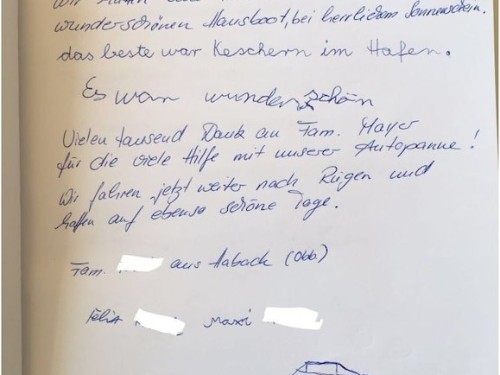 wunderschönen Hausboot, bei herrlichem Sonnenschein.
das beste war Keschern im Hafen.
Es war wunderschön
Vielen tausend Dank an Fam. Mayer
für die viele Hilfe mit unserer Autopanne!
Wir fahren jetzt weiter nach Rügen und
hoffen auf ebenso schöne Tage.
Fam. aus Habach (Obb.)
Felix Maxi